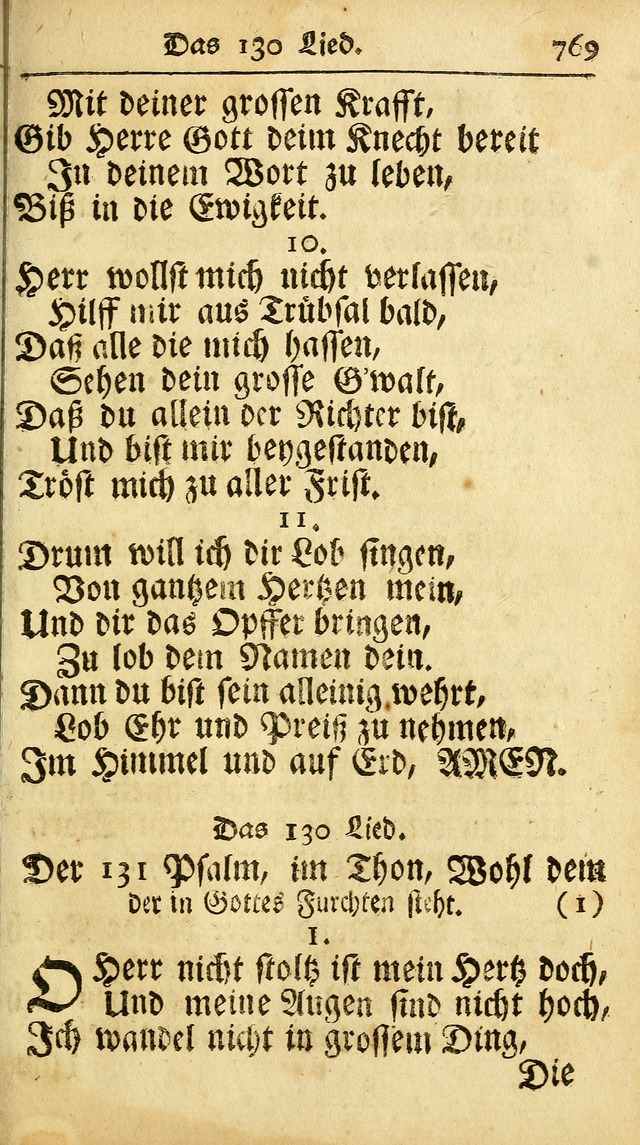 Das 130 Lied. 769
Mit deiner grossen Krafft,
Gib Herre Gott deim Knecht bereit
In deinem Wort zu leben,
Biß in die Ewigkeit.
10.
Herr wollst mich nicht verlassen,
Hilff mir aus Trübsal bald,
Daß alle die mich hassen,
Sehen dein grosse G'walt,
Daß du allein der Richter bist,
Und bist mir beygestanden,
Tröst mich zu aller Frist.
11.
Drum will ich dir Lob singen,
Von gantzem Hertzen mein,
Und dir das Opffer bringen,
Zu lob dem Namen dein.
Dann du bist sein alleinig wehrt,
Lob Ehr und Preiß zu nehmen,
Im Himmel und auf Erd, AMEN.
Das 130 Lied.
Der 131 Psalm, im Thon, Wohl dem
der in Gottes Furchten steht. (1)
1.
O Herr nicht stoltz ist mein Hertz doch,
Und meine Augen sind nicht hoch,
Ich wandel nicht in grossem Ding,
Die